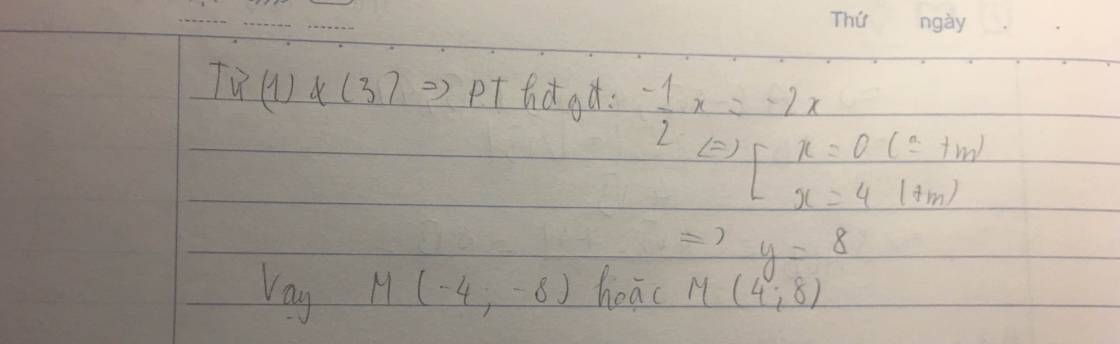 Thứ ngày
Từ (1) & (3) => PT hđgđ: -1/2 x = -2x
<=> [ x = 0 (o tm)
x = 4 (tm)
=> y = 8
Vạy M (-4; -8) hoặc M (4; 8)